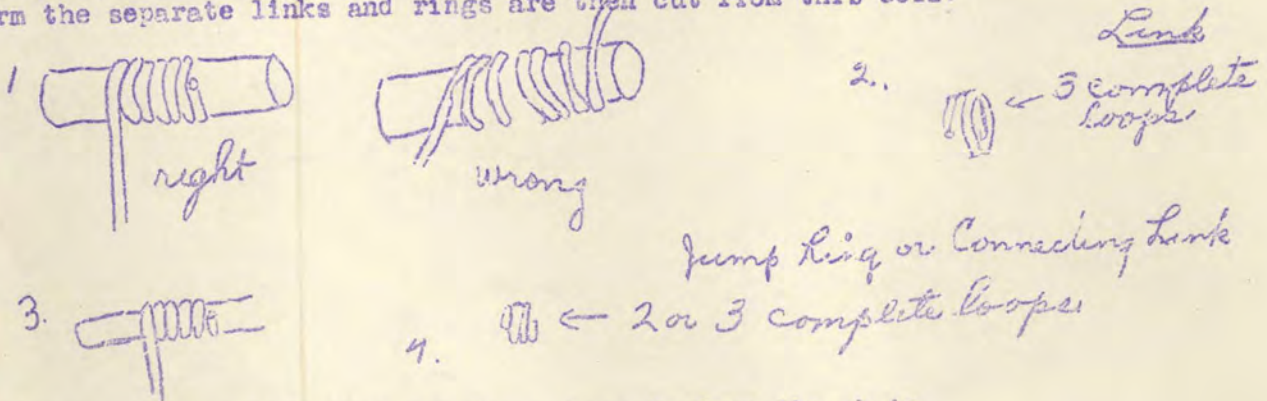 rm the separate links and rings are then cut from this
1
right
wrong
2.
Link
← 3 complete
loops
Jump Ring or Connecting Link
3.
4.
← 2 or 3 complete loops